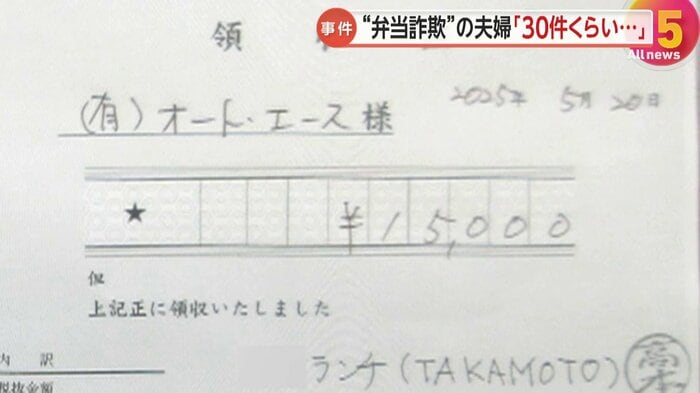 事件 “弁当詐欺”の夫婦「30件くらい…」
5
All news
領
2025年 5月 20日
(有)オート・エース様
★ ¥15,000
但
上記正に領収いたしました
内 訳
税抜金額
ランチ(TAKAMOTO)
高本